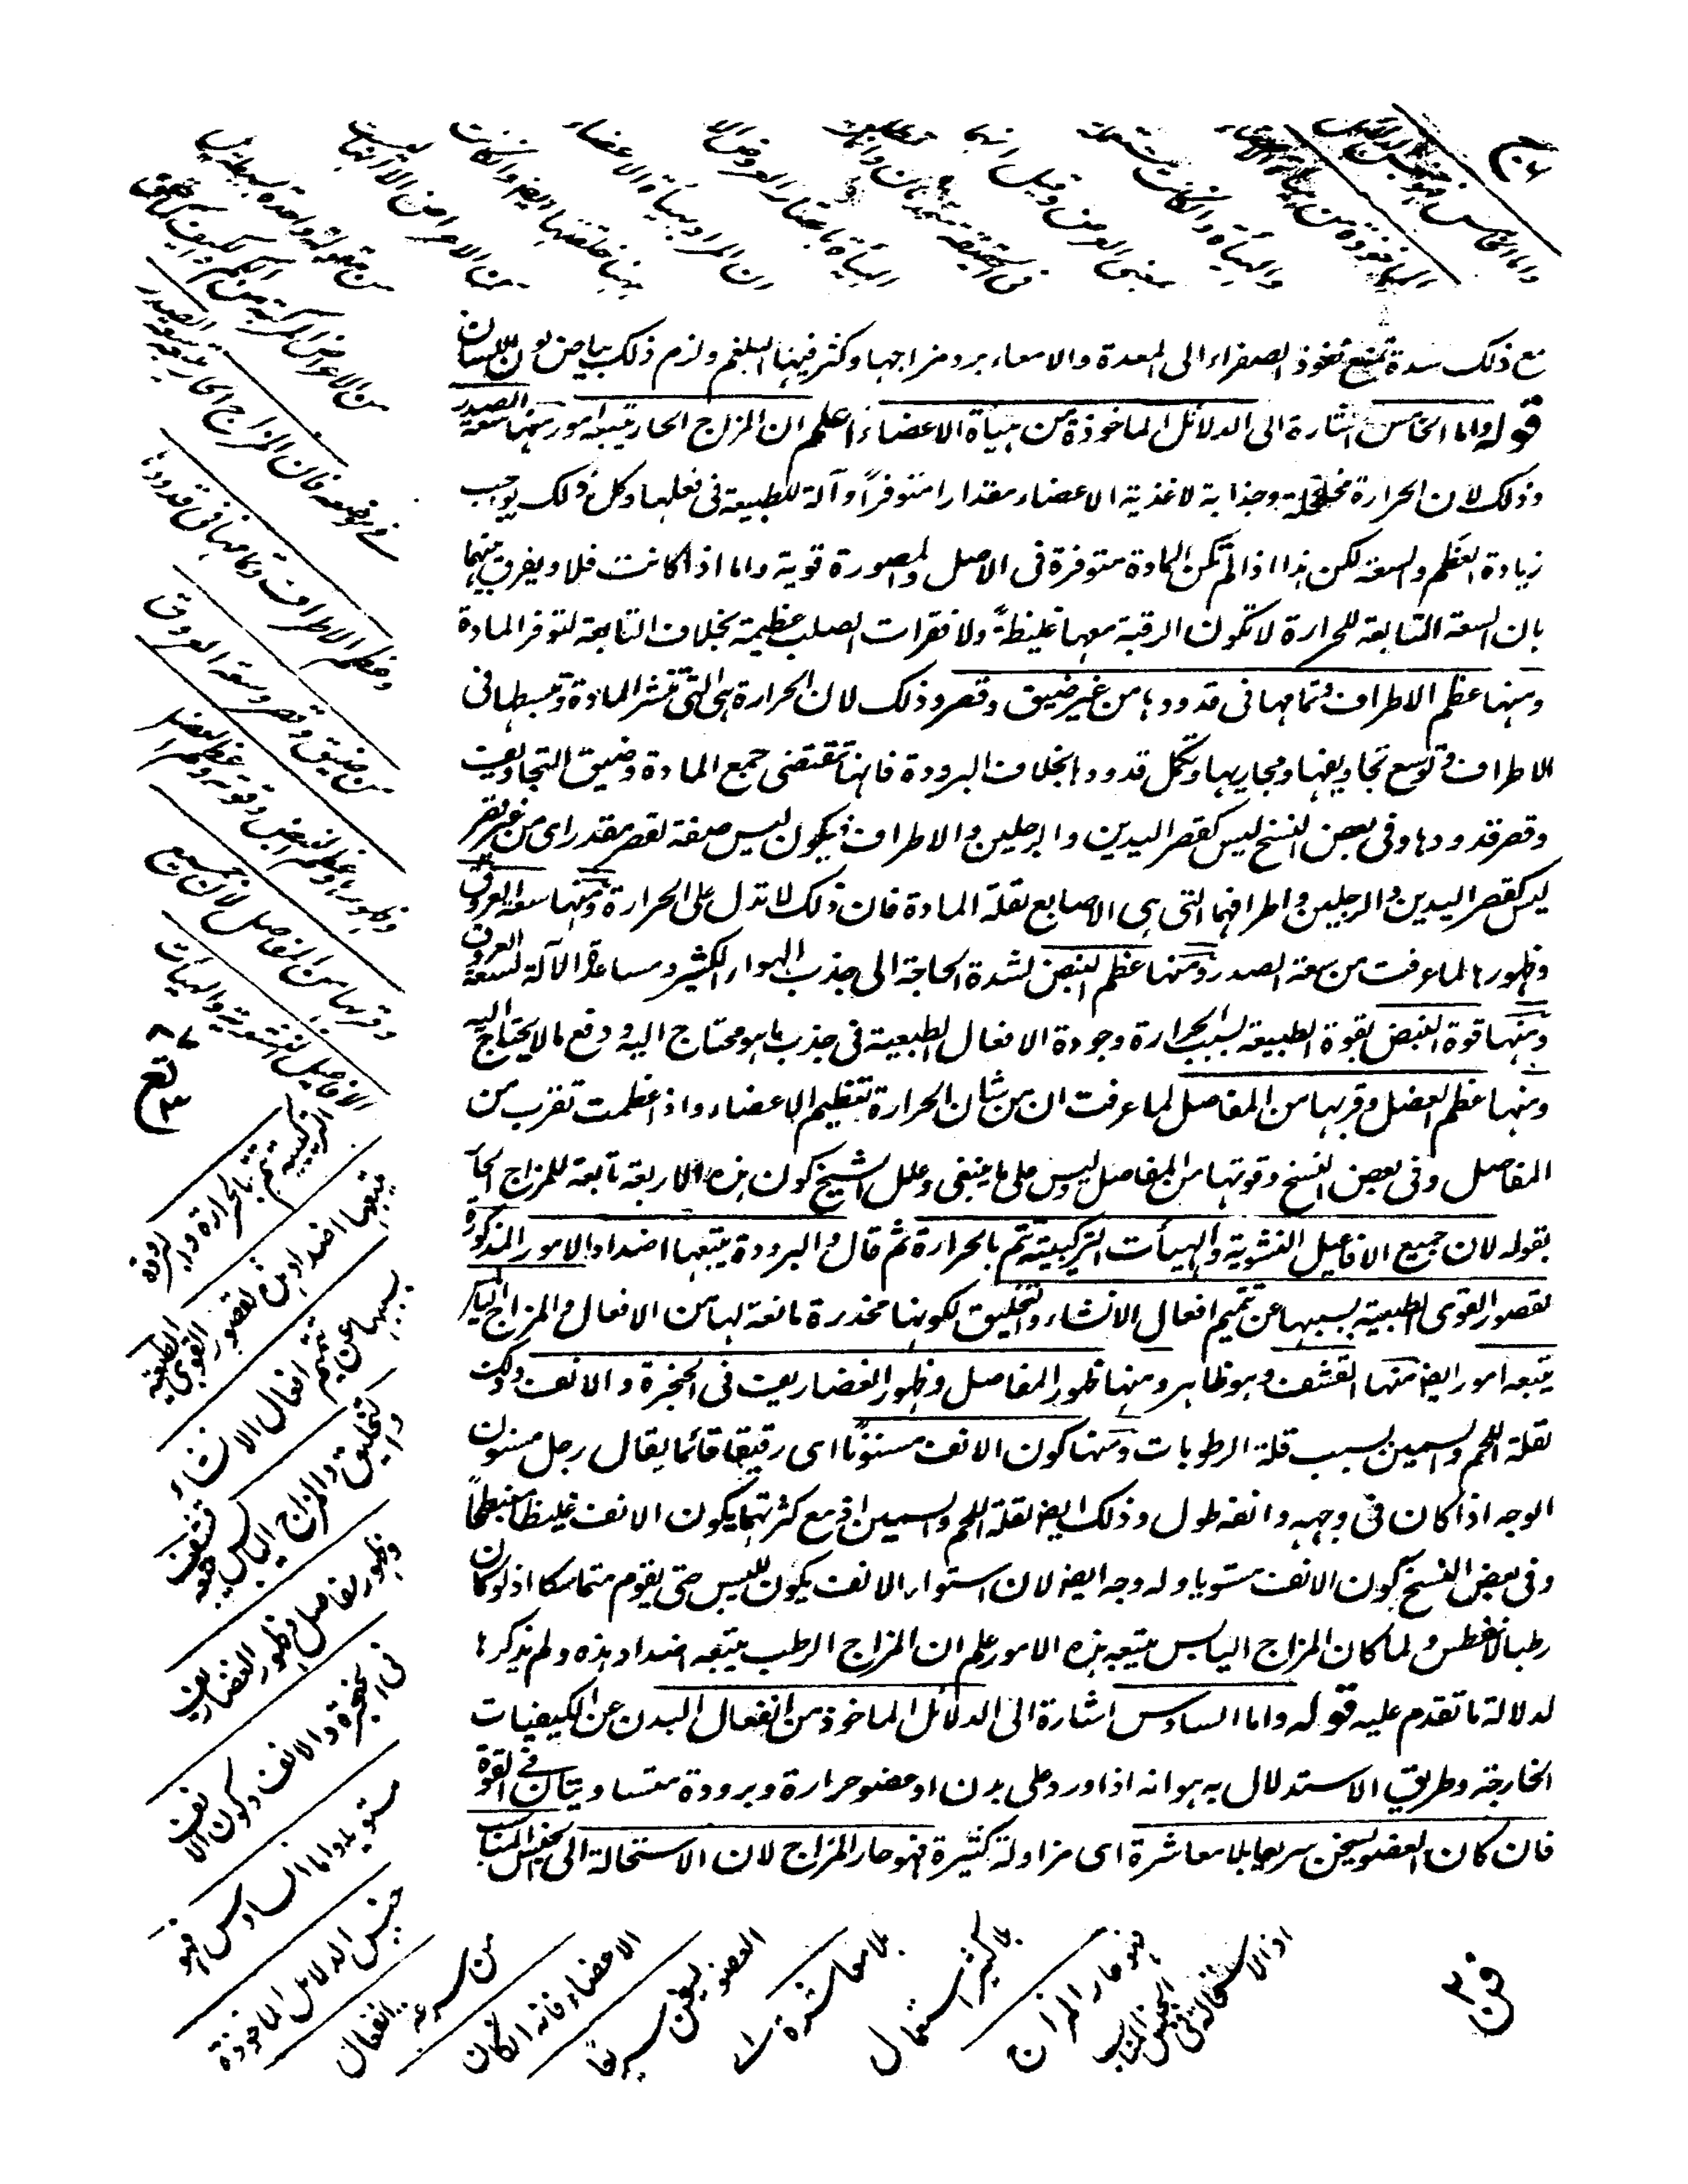 مع ذلك سدة تمنع نفوذ الصفراء الى المعدة والامعاء برد مزاجها وكثر فيها البلغم ولزم ذلك بياض لون اللسان
قوله واما الخامس اشارة الى الدلائل الماخوذة من هيأة الاعضاء اعلم ان المزاج الحار يتبعه امور منها سعة الصدر
وذلك لان الحرارة مخلخلة وجذابة لاغذية الاعضاء مقدارا متوفراً وآلة للطبيعة فى فعلها وكل ذلك يوجب
زيادة العظم والسعة لكن هذا اذا لم تكن المادة متوفرة فى الاصل والمصورة قوية واما اذا كانت فلا ويفرق بينهما
بان السعة التابعة للحرارة لا تكون الرقبة معها غليظةً ولا فقرات الصلب عظيمة بخلاف التابعة لتوفر المادة
ومنها عظم الاطراف وتمامها فى قدودها من غير ضيق وقصر وذلك لان الحرارة هى التى تنشر المادة وتبسطها فى
الاطراف وتوسع تجاويفها ومجاريها وتكمل قدودها بخلاف البرودة فانها تقتضى جمع المادة وضيق التجاويف
وقصر قدودها وفى بعض النسخ ليس كقصر اليدين والرجلين والاطراف فيكون ليس صفة لقصر مقدر اى من غير قصر
ليس كقصر اليدين والرجلين واطرافهما التى هى الاصابع لقلة المادة فان ذلك لا تدل على الحرارة ومنها سعة العروق
وظهورها لما عرفت من سعة الصدر ومنها عظم النبض لشدة الحاجة الى جذب الهواء الكثير ومساعدة الآلة لسعة العروق
ومنها قوة النبض لقوة الطبيعة بسبب الحرارة وجودة الافعال الطبعية فى جذب ما هو محتاج اليه ودفع ما لا يحتاج اليه
ومنها عظم العضل وقربها من المفاصل لما عرفت ان من شان الحرارة تعظيم الاعضاء واذا عظمت تقرب من
المفاصل وفى بعض النسخ وقوتها من المفاصل وليس على ما ينبغى وعلل الشيخ كون هذه الاربعة تابعة للمزاج الحار
بقوله لان جميع الافاعيل النشوية والهيأت التركيبية تتم بالحرارة ثم قال والبرودة يتبعها اضداد الامور المذكورة
لقصور القوى الطبعية بسببها عن تتميم افعال الانشاء والتخليق لكونها مخدرة مانعة لها من الافعال والمزاج اليابس
يتبعه امور ايضا منها القشف وهو ظاهر ومنها ظهور المفاصل وظهور الغضاريف فى الحنجرة والانف وذلك
لقلة اللحم والسمين بسبب قلة الرطوبات ومنها كون الانف مسنونًا اى رقيقا قائما يقال رجل مسنون
الوجه اذا كان فى وجهه وانفه طول وذلك ايضا لقلة اللحم والسمين اذ مع كثرتهما يكون الانف غليظا منبطحاً
وفى بعض النسخ كون الانف مستويا وله وجه ايضا لان استواء الانف يكون لليبس حتى يقوم متماسكا اذ لو كان
رطبا لانفطس ولما كان المزاج اليابس يتبعه هذه الامور علم ان المزاج الرطب يتبعه اضداد هذه ولم يذكرها
لدلالة ما تقدم عليه قوله واما السادس اشارة الى الدلائل الماخوذ من انفعال البدن عن الكيفيات
الخارجة وطريق الاستدلال به هو انه اذا ورد على بدن او عضو حرارة وبرودة متساويتان فى القوة
فان كان العضو يسخن سريعا بلا معاشرة اى مزاولة كثيرة فهو حار المزاج لان الاستحالة الى الجنس المناسب
وعظم الاطراف وتمامها فى قدودها
من ضيق وقصر وسعة العروق
وظهورها وعظم النبض وقوته وعظم العضل
وقربها من المفاصل لان جميع
الافاعيل النشوية والهيأت
التركيبية تتم بالحرارة والبرودة
يتبعها اضداد هذه لقصور القوى الطبعية
بسببها عن تتميم افعال الانشاء
والتخليق والمزاج اليابس يتبعه قشف
وظهور مفاصل وظهور الغضاريف
فى الحنجرة والانف وكون الانف
مستويا واما السادس فهو
جنس الدلائل الماخوذة
من سرعة انفعال
الاعضاء فانه ان كان
العضو يسخن سريعا
بلا معاشرة
فهو حار المزاج
اذ الاستحالة فى الجنس المناسب